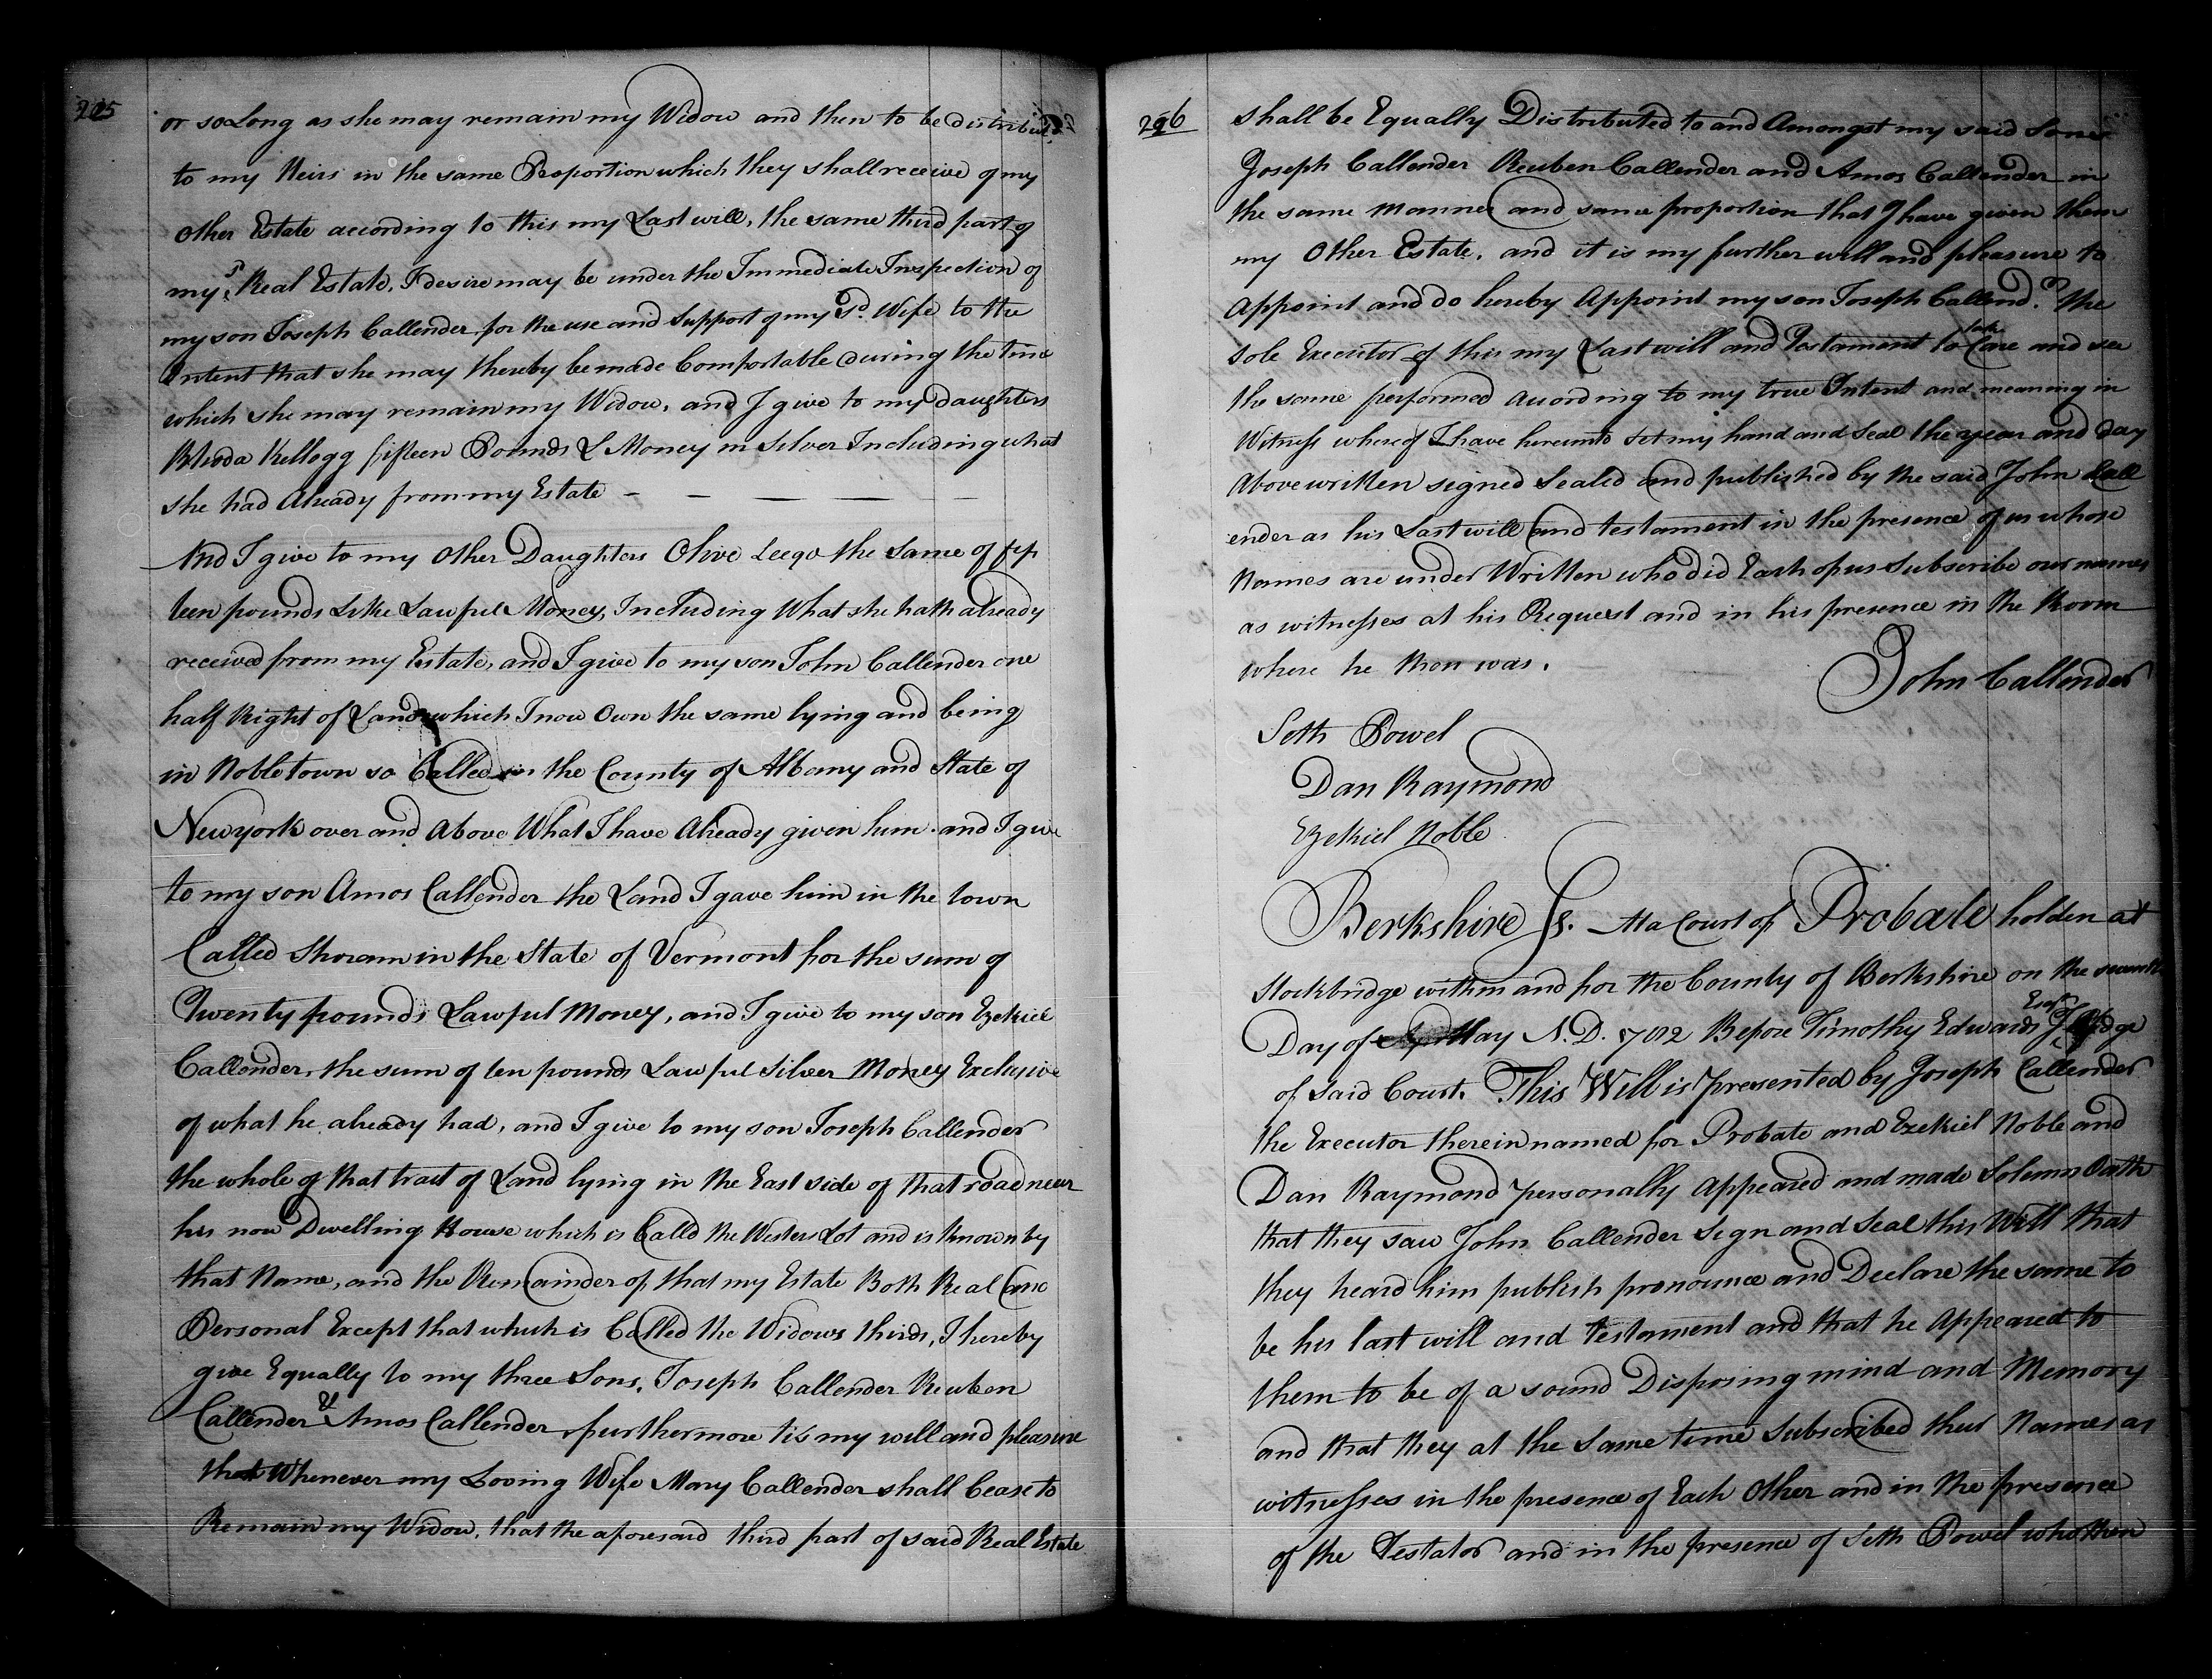 205
or so Long as she may remain my Widow and then to be distributed
to my Heirs in the same Proportion which they shall receive of my
other Estate according to this my Last will, the same third part of
my sd Real Estate, I desire may be under the Immediate Inspection of
my son Joseph Callender for the use and Support of my Sd. Wife to the
Intent that she may thereby be made Comfortable during the time
which she may remain my Widow, and I give to my daughters
Rhoda Kellogg fifteen Pounds L Money in Silver Including what
she had Already from my Estate - - - - -
And I give to my other Daughters Olive the Same of fif
teen pounds Like Lawful Money, Including What she hath already
received from my Estate, and I give to my son John Callender one
half Right of Land which I now Own the same lying and being
in Nobletown so Called in the County of Albany and State of
Newyork over and Above What I have Already given him. and I give
to my son Amos Callender the Land I gave him in the town
Called Shoram in the State of Vermont for the sum of
Twenty pounds Lawful Money, and I give to my son Ezekiel
Callender, the sum of ten pounds Lawful Silver Money Exclusive
of what he already had, and I give to my son Joseph Callender
the whole of that tract of Land lying in the East side of that road near
his now Dwelling House which is Calld the Lot and is known by
that Name, and the Remainder of that my Estate Both Real and
Personal Except that which is Called the Widows thirds, I hereby
give Equally to my three Sons, Joseph Callender Reuben
Callender & Amos Callender furthermore tis my will and pleasure
that Whenever my Loving Wife Mary Callender shall Cease to
Remain my Widow, that the aforesaid third part of said Real Estate
206
shall be Equally Distributed to and Amongst my said Sons
Joseph Callender Reuben Callender and Amos Callender in
the same manner and same proportion that I have given them
my Other Estate, and it is my further will and pleasure to
Appoint and do hereby Appoint my son Joseph Callendr the
sole Executor of this my Last will and Testament to take Care and see
the same performed according to my true Intent and meaning in
Witness whereof I have hereunto Set my hand and Seal the year and day
Above written signed Sealed and published by the said John Call
ender as his Last will and testament in the presence of us whose
Names are under Written who did Each of us Subscribe our names
as witnesses at his Request and in his presence in the Room
where he then was.
John Callender
Seth Powel
Dan Raymond
Ezekiel Noble
Berkshire Ss. At a Court of Probate holden at
Stockbridge within and for the County of Berkshire on the seventh
Day of May A.D. 1782 Before Timothy Edwards Esqr Judge
of Said Court. This Will is presented by Joseph Callender
the Executor therein named for Probate and Ezekiel Noble and
Dan Raymond personally Appeared and made Solemn Oath
that they saw John Callender Sign and Seal this Will that
they heard him publish pronounce and Declare the same to
be his last will and testament and that he Appeared to
them to be of a sound Disposing mind and Memory
and that they at the Same time Subscribed their Names as
witnesses in the presence of Each Other and in the presence
of the Testator and in the presence of Seth Powel who then